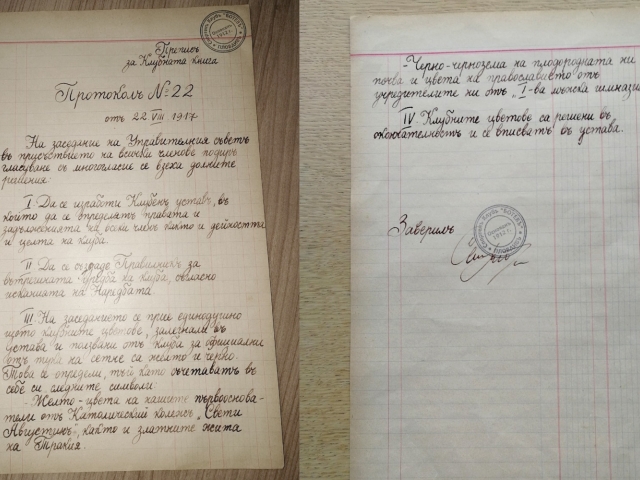 Преписъ
за Клубната книга
Протоколъ №22
отъ 22 VIII 1917
На заседание на Управителния съветъ
въ присъствието на всички членове подиръ
гласуване съ многогласие се взеха долните
решения:
I. Да се изработи Клубенъ уставъ, въ
който да се определятъ правата и
задълженията на всеки членъ както и дейността
и целта на клуба.
II Да се създаде Правилникъ за
вътрешната уредба на клуба, съгласно
исканията на Наредбата.
III. На заседанието се прие единодушно
щото клубните цветове, залегнали въ
устава и ползвани отъ клуба за официални
отъ тука на сетне са желто и черно.
Това се определи, тъй като съчетаватъ въ
себе си следните символи:
- Желто - цвета на нашите първооснова-
тели отъ Католический колежъ "Свети
Августинъ", както и златните жита
на Тракия.
- Черно - чернозема на плодородната ни
почва и цвета на православието отъ
учредителите ни отъ "I-ва мъжка гимназия
IV Клубните цветове са решени въ
окончателность и се вписватъ въ устава.
Заверилъ